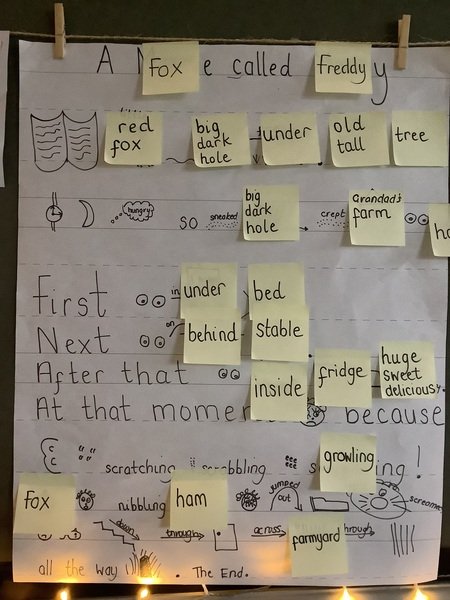 A Fox called Freddy
red fox big dark hole under old tall tree
hungry so sneaked big dark hole crept Grandad's farm
First in under bed
Next on behind stable
After that inside fridge huge sweet delicious
At that because
scratching scrabbling growling !
Fox nibbling ham jumped out screamed
down through across farmyard through
all the way . The End.